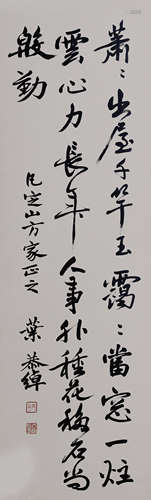 蕭〻出屋千竿玉靄〻當窓一炷
雲心力長年人事外種花移石尚
殷勤
凡定山方家正之
葉恭綽